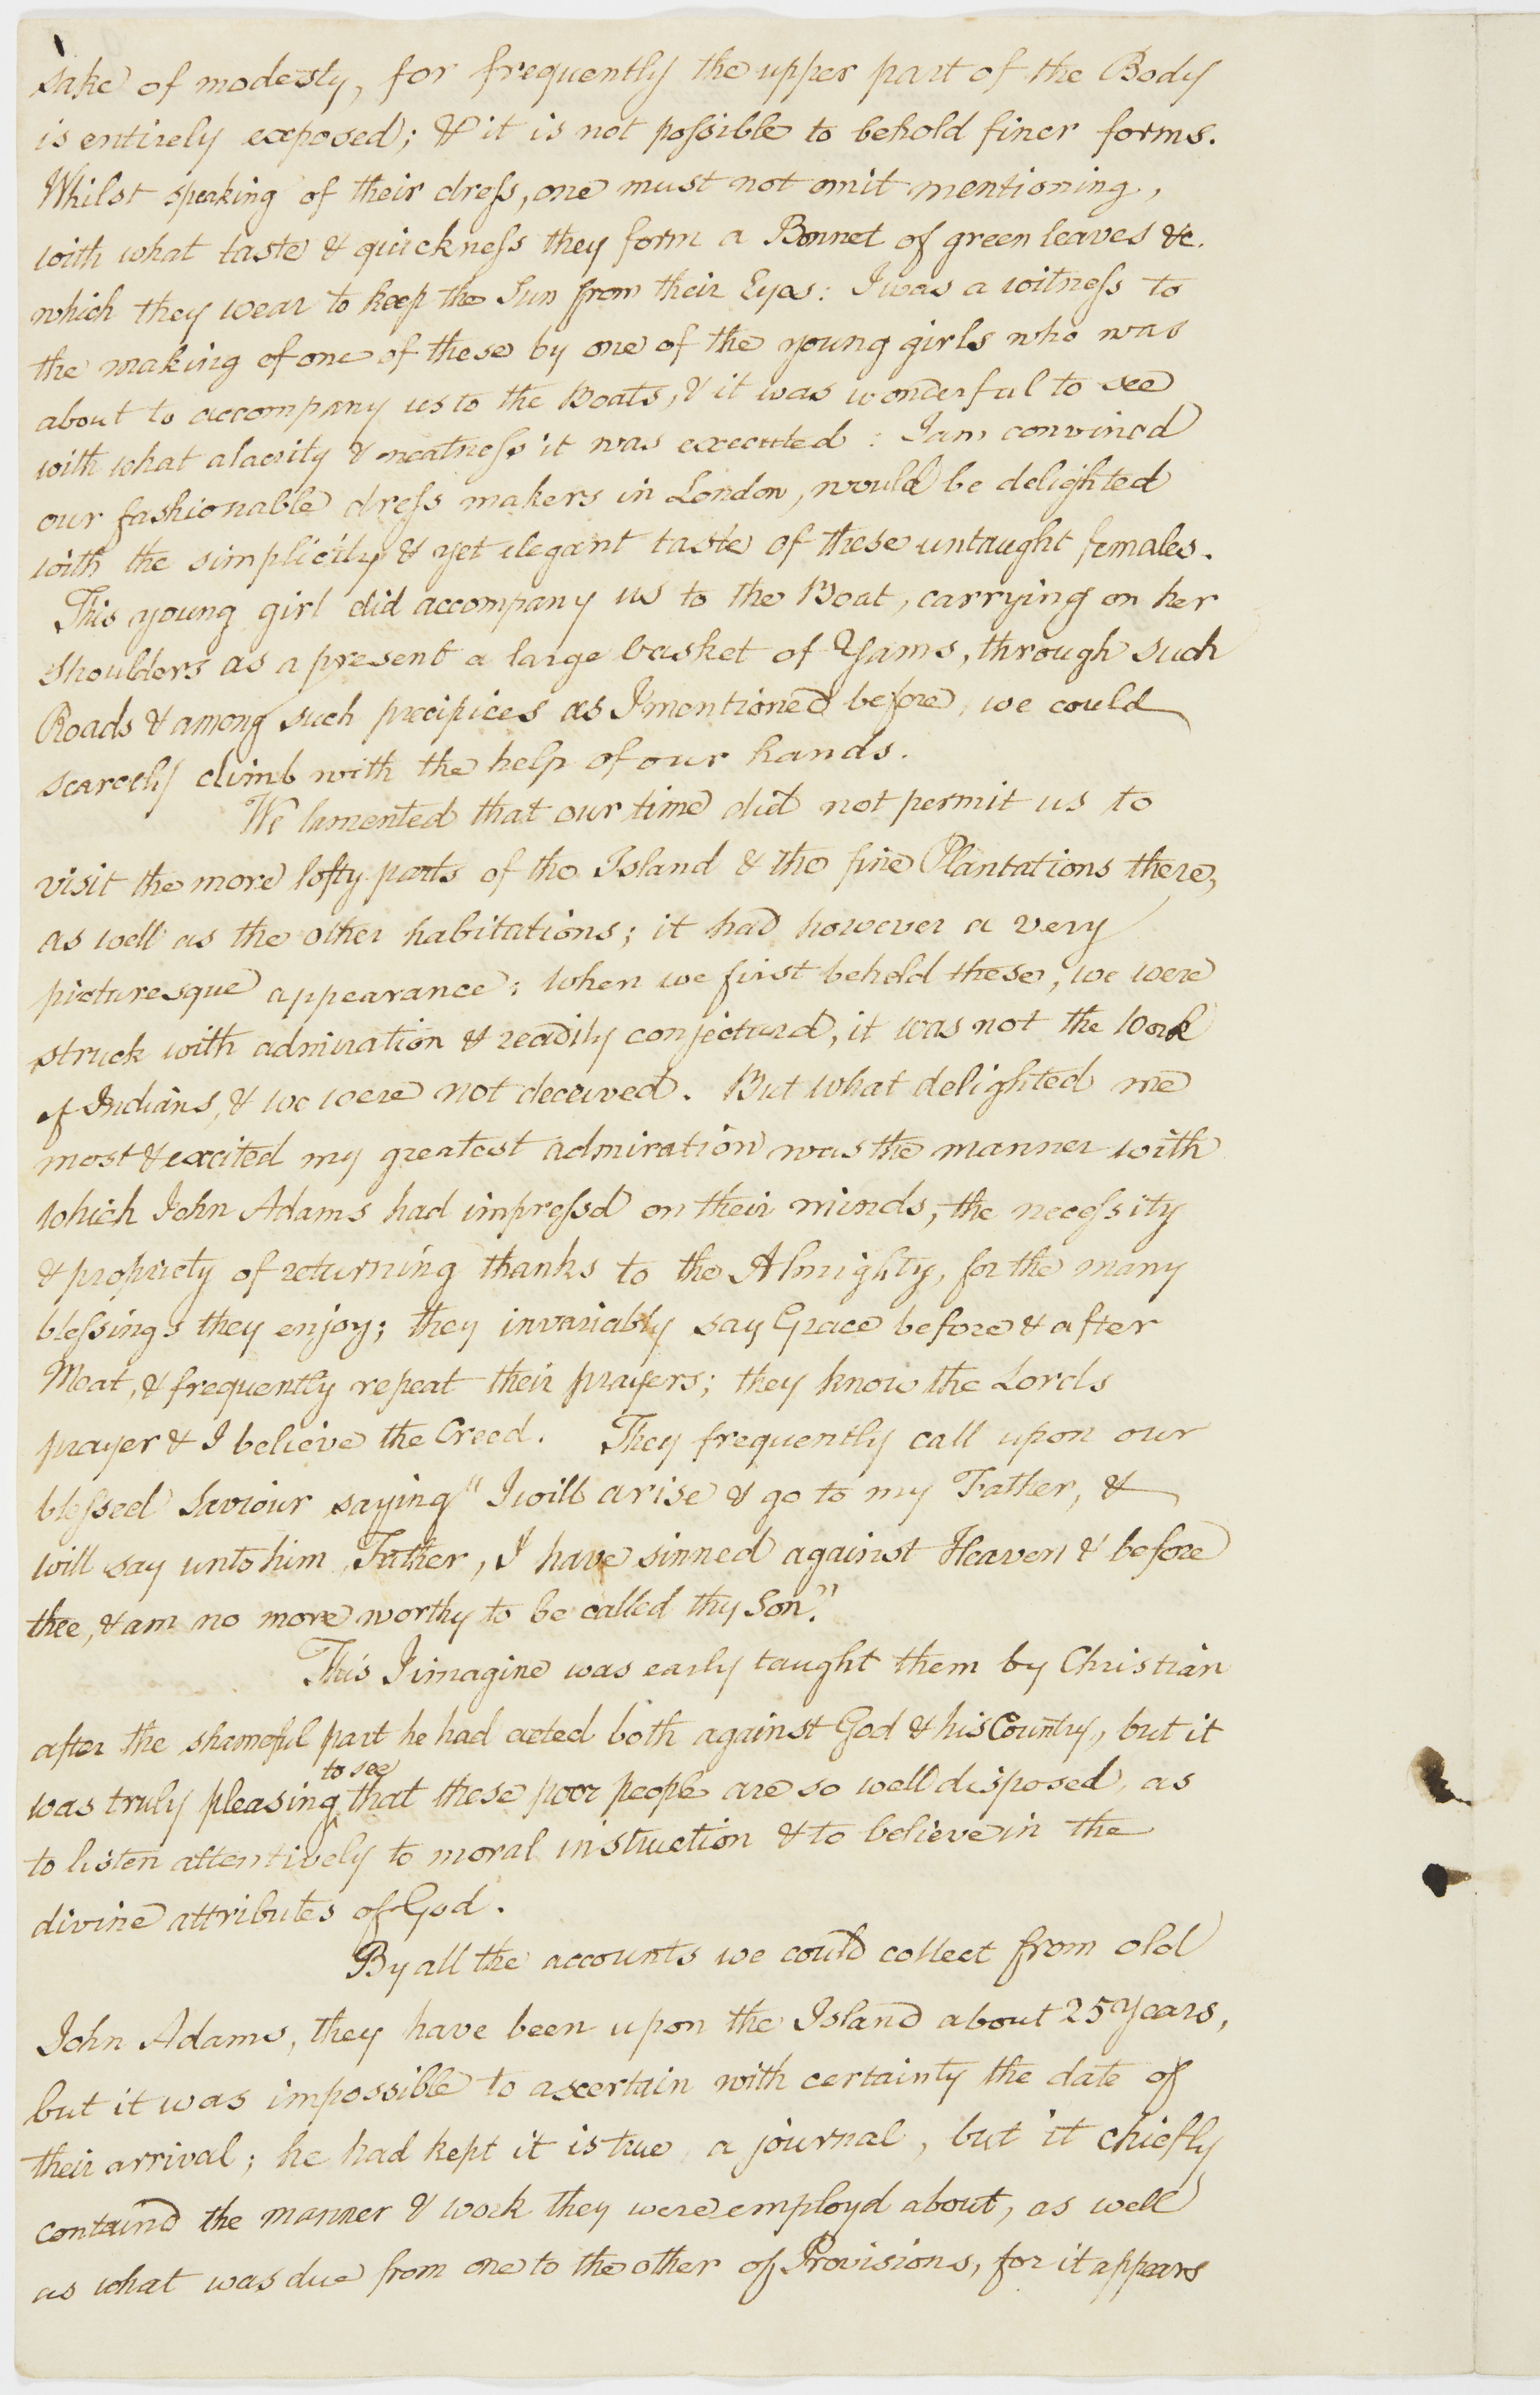 sake of modesty, for frequently the upper part of the Body
is entirely exposed; & it is not poſsible to behold finer forms.
Whilst speaking of their dreſs, one must not omit mentioning,
with what taste & quickneſs they form a Bonnet of green leaves &c.
which they wear to keep the Sun from their Eyes: I was a witneſs to
the making of one of these by one of the young girls who was
about to accompany us to the Boats, & it was wonderful to see
with what alacrity & neatneſs it was executed: I am convincd
our fashionable dreſs makers in London, would be delighted
with the simplicity & yet elegant taste of these untaught females.
This young girl did accompany us to the Boat, carrying on her
Shoulders as a present a large basket of Yams, through such
Roads & among such precipices as I mentioned before, we could
scarcely climb with the help of our hands.
We lamented that our time did not permit us to
visit the more lofty parts of the Island & the fine Plantations there,
as well as the other habitations; it had however a very
picturesque appearance; when we first beheld these, we were
struck with admiration & readily conjecturd, it was not the Work
of Indians, & we were not deceived. But what delighted me
most & excited my greatest admiration was the manner with
which John Adams had impreſsd on their minds, the neceſsity
& propriety of returning thanks to the Almighty, for the many
bleſsings they enjoy; they invariably say Grace before & after
Meat, & frequently repeat their prayers; they know the Lords
prayer & I believe the Creed. They frequently call upon our
bleſsed Saviour saying "I will arise & go to my Father, &
will say unto him, Father, I have sinned against Heaven & before
thee, & am no more worthy to be called thy Son."
This I imagine was early taught them by Christian
after the shameful part he had acted both against God & his Country, but it
to see
was truly pleasing ^ that these poor people are so well disposed, as
to listen attentively to moral instruction & to believe in the
divine attributes of God.
By all the accounts we could collect from old
John Adams, they have been upon the Island about 25 Years,
but it was impossible to ascertain with certainty the date of
their arrival; he had kept it is true a journal, but it chiefly
containd the manner & work they were employd about, as well
as what was due from one to the other of Provisions, for it appears